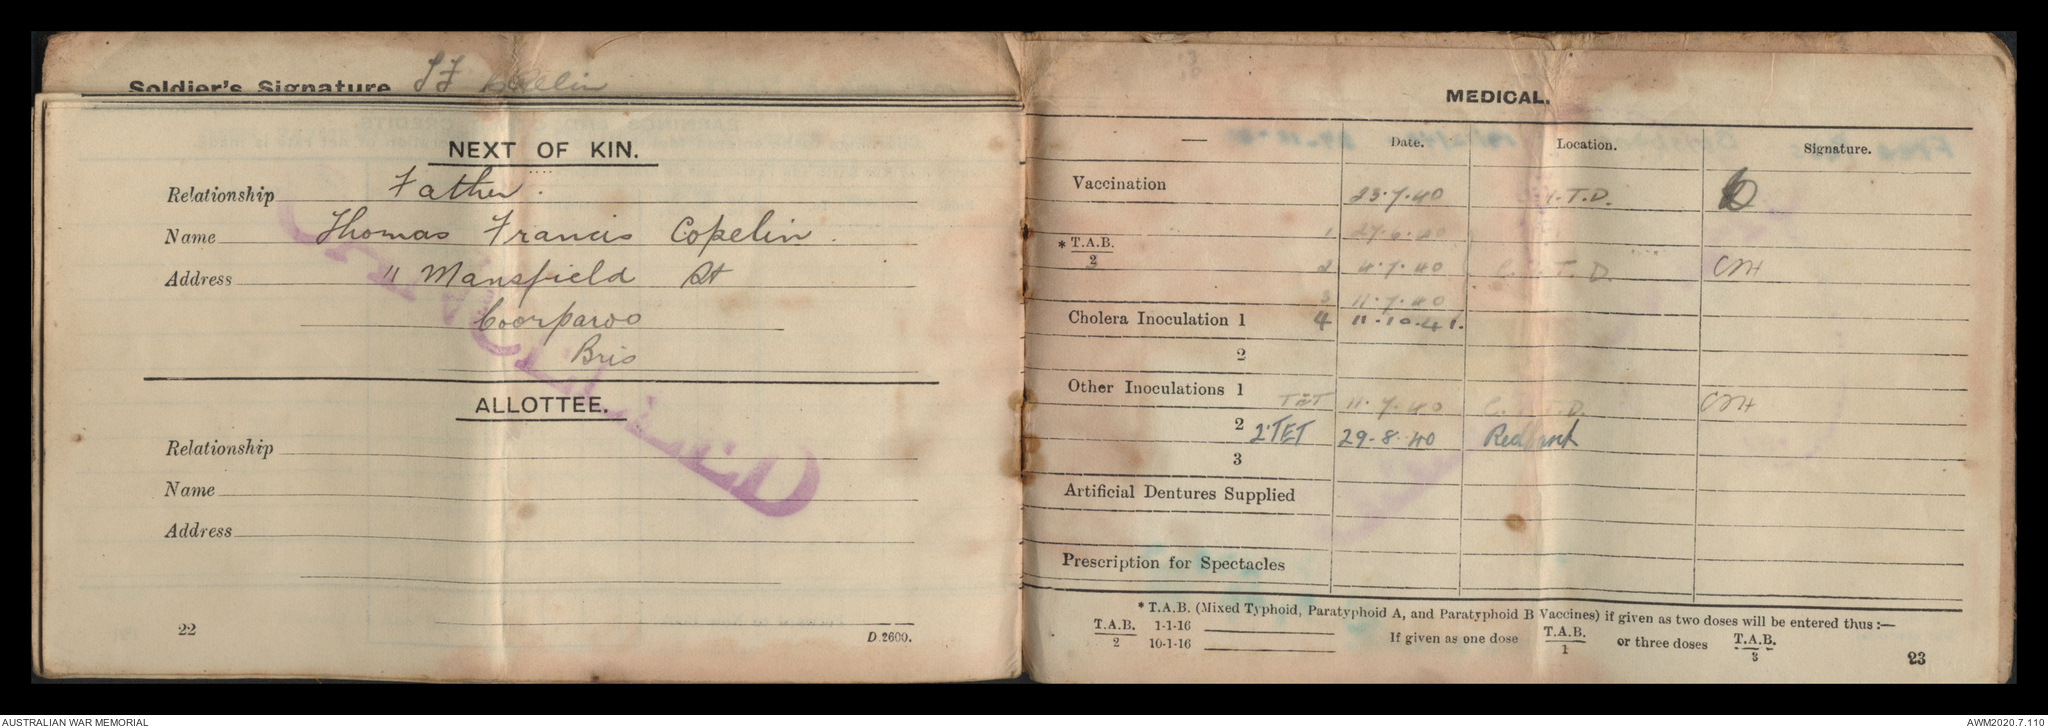 Soldier's Signature
NEXT OF KIN.
Relationship Father.
Name Thomas Francis Copelin.
Address 11 Mansfield St
Coorparoo
Bris
CANCELLED
ALLOTTEE.
Relationship
Name
Address
22
D.2600.
MEDICAL.
— Date. Location. Signature.
Vaccination 23.7.40 I.T.D.
1 27.6.40
* T.A.B.
2
2 4.7.40 C.I.T.D. CNH
3 11.7.40
Cholera Inoculation 1 4 11.10.41.
2
Other Inoculations 1 TET 11.7.40 C.I.T.D. CNH
2 2.TET 29.8.40 Redbank
3
Artificial Dentures Supplied
Prescription for Spectacles
* T.A.B. (Mixed Typhoid, Paratyphoid A, and Paratyphoid B Vaccines) if given as two doses will be entered thus :—
T.A.B. 1-1-16
2 10-1-16
If given as one dose T.A.B. or three doses T.A.B.
1 3
23
AUSTRALIAN WAR MEMORIAL
AWM2020.7.110